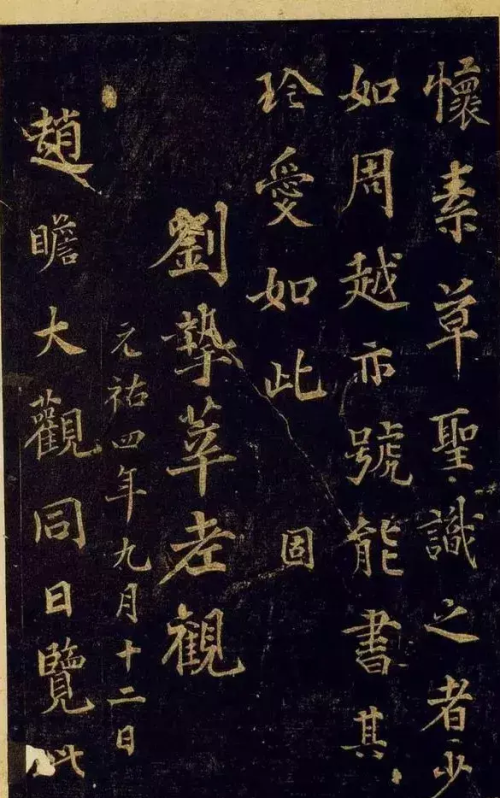 懷素草聖識之者少
如周越亦號能書其
珍愛如此 固
劉摯莘老觀
元祐四年九月十二日
趙瞻大觀同日覽此